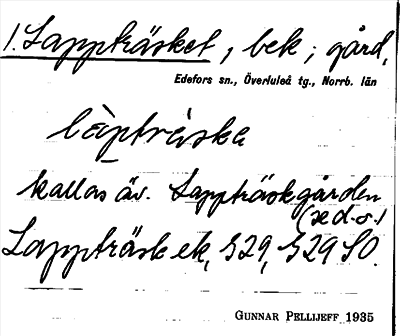 1. Lappträsket, bek; gård,
Edefors sn., Överluleå tg., Norrb. län
làptràska
kallas äv. Lappträskgården
(se d.o.)
Lappträsk ek, 329, 329 SO.
GUNNAR PELLIJEFF 1935